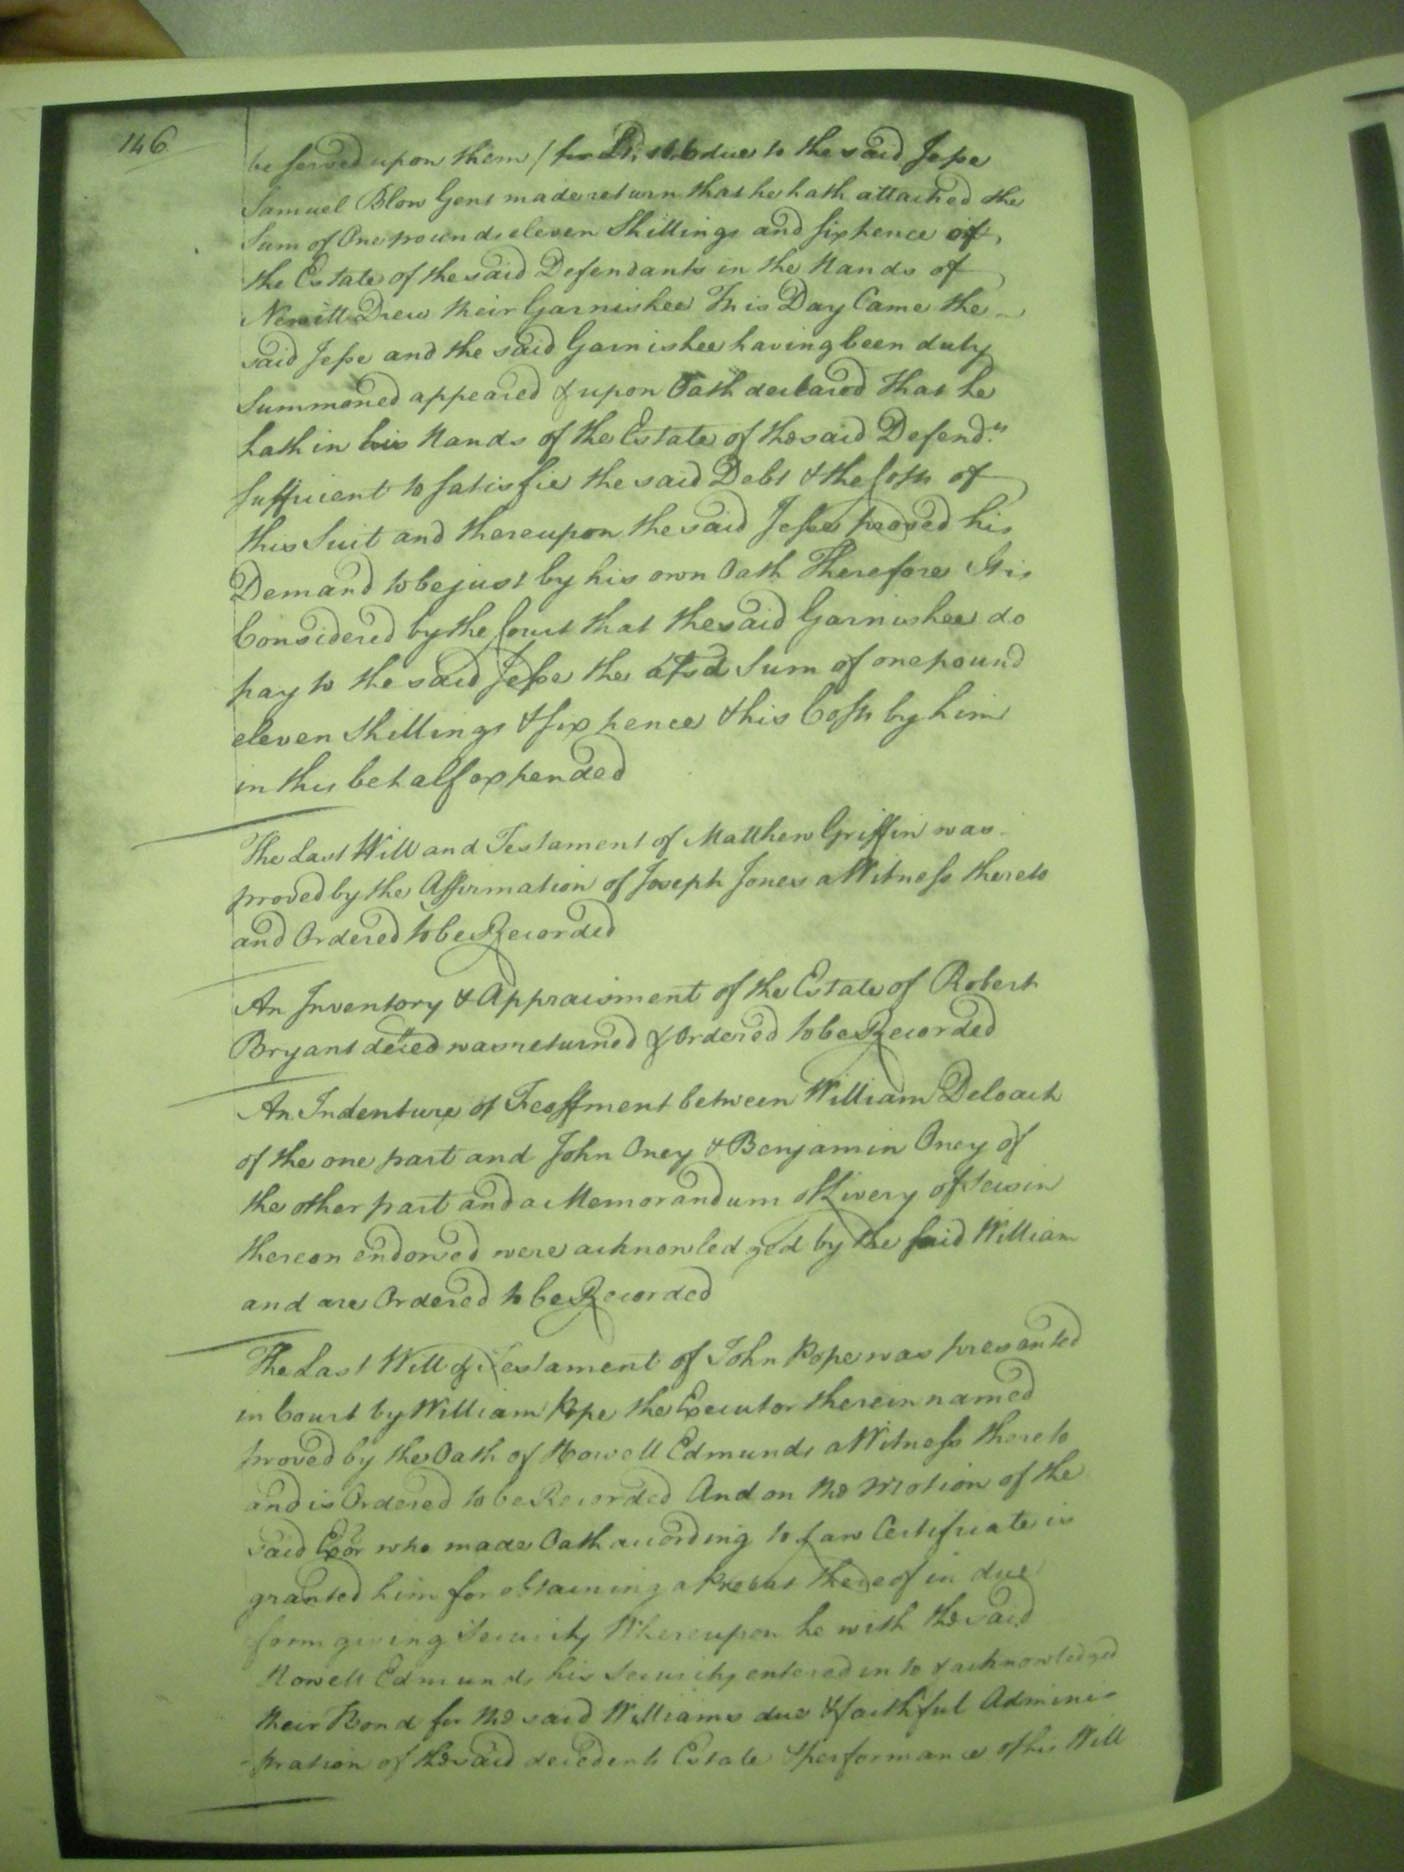 146
be served upon them / for due to the said Jesse
Samuel Blow Gent made return that he hath attached the
Sum of One pound eleven Shillings and sixpence of
the Estate of the said Defendants in the Hands of
Newitt Drew their Garnishee This Day Came the
said Jesse and the said Garnishee having been duly
Summoned appeared & upon Oath declared that he
hath in his Hands of the Estate of the said Defend.ts
sufficient to satisfie the said Debt & the Costs of
this Suit and thereupon the said Jesse proved his
Demand to be just by his own Oath Therefore It is
Considered by the Court that the said Garnishee do
pay to the said Jesse the afsd Sum of one pound
eleven Shillings & six pence & his Costs by him
in this behalf expended
The Last Will and Testament of Matthew Griffin was
proved by the Affirmation of Joseph Jones a Witness thereto
and Ordered to be Recorded
An Inventory & Appraisment of the Estate of Robert
Bryant deced was returned & Ordered to be Recorded
An Indenture of Feoffment between William Deloach
of the one part and John Oney & Benjamin Oney of
the other part and a Memorandum of Livery of Seisin
thereon endorsed were acknowledged by the said William
and are Ordered to be Recorded
The Last Will & Testament of John Pope was presented
in Court by William Pope the Executor therein named
proved by the Oath of Howell Edmunds a Witness thereto
and is Ordered to be Recorded And on the Motion of the
said Exor who made Oath according to Law Certificate is
granted him for obtaining a Probat thereof in due
form giving Security Whereupon he with the said
Howell Edmunds his Security entered into & acknowledged
their Bond for the said Williams due & faithful Adminis
-tration of the said decedents Estate & performance of his Will